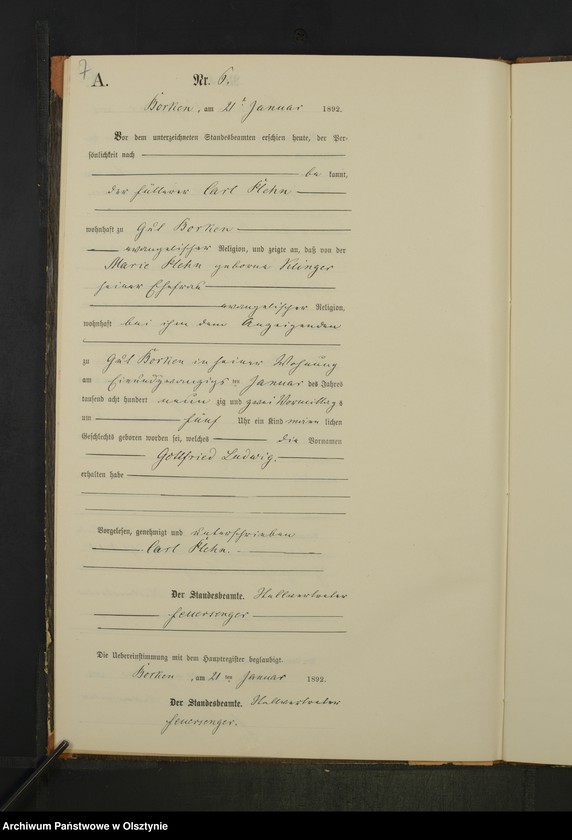 7
A.
Nr. 6.
Borken, am 21 Januar 1892.
Vor dem unterzeichneten Standesbeamten erschien heute, der Per-
sönlichkeit nach
be kannt,
der Carl Plehn
wohnhaft zu Gut Borken
evangelischer Religion, und zeigte an, daß von der
Marie Plehn geborene
seiner Ehefrau
evangelischer Religion,
wohnhaft bei ihm dem Anzeigenden
zu Gut Borken in seiner Wohnung
am Einundzwanzigsten Januar des Jahres
tausend acht hundert neun zig und zwei Vormittags
um fünf Uhr ein Kind männlichen
Geschlechts geboren worden sei, welches die Vornamen
Gottfried Ludwig.
erhalten habe
Vorgelesen, genehmigt und unterschrieben
Carl Plehn.
Der Standesbeamte. Stellvertreter
Feuersenger
Die Uebereinstimmung mit dem Hauptregister beglaubigt.
Borken, am 21 ten Januar 1892.
Der Standesbeamte. Stellvertreter
Feuersenger.
Archiwum Państwowe w Olsztynie